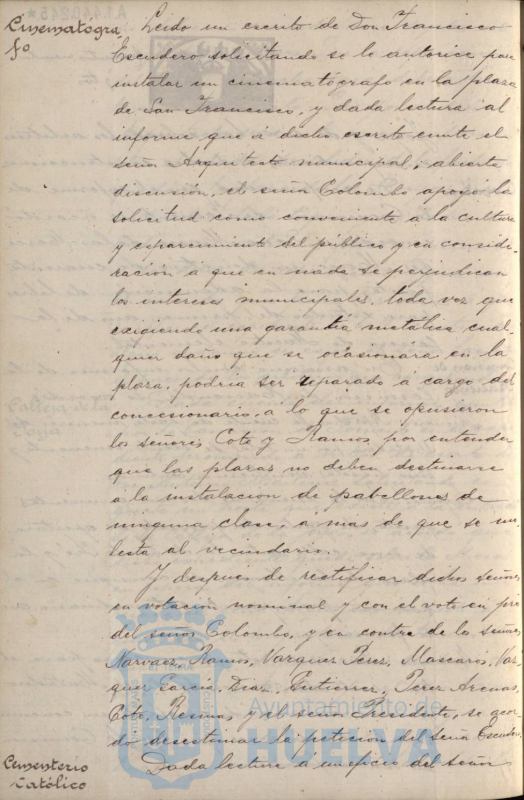 Cinematógra
fo
Leido un escrito de Don Francisco
Escudero solicitando se le autorice para
instalar un cinematógrafo en la plaza
de San Francisco, y dada lectura al
informe que á dicho escrito emite el
señor Arquitecto municipal; abierta
discusión, el señor Colombo apoyó la
solicitud como conveniente á la cultura
y esparcimiento del público y en conside-
ración á que en nada se perjudican
los intereses municipales, toda vez que
exigiendo una garantia metálica cual-
quier daño que se ocasionára en la
plaza, podria ser reparado á cargo del
concesionario, á lo que se opusieron
los señores Cote y Ramos por entender
que las plazas no deben destinarse
á la instalacion de pabellones de
ninguna clase, á mas de que se mo-
lesta al vecindario.
Y despues de rectificar dichos señores,
en votación nominal y con el voto en pró
del señor Colombo, y en contra de los señores
Narvaez, Ramos, Vazquez Perez, Mascarós, Vaz-
quez Garcia, Diaz, Gutierrez, Perez Arenas,
Cote, Resinas y el señor Presidente, se acor-
dó desestimar la peticion del señor Escudero.
Cementerio
Católico
Dada lectura á un oficio del señor
Ayuntamiento de
HUELVA